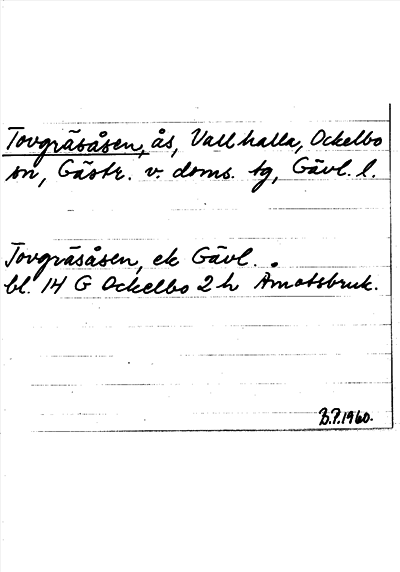 Tovgräsåsen, ås, Vallhalla, Ockelbo
sn, Gästr. v. doms. tg, Gävl. l.
Tovgräsåsen, ek Gävl.
bl. 14 G Ockelbo 2 h Åmotsbruk.
B.P. 1960.